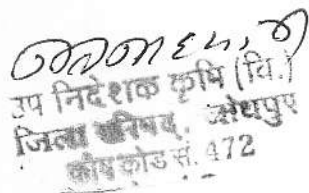 उप निदेशक कृषि (वि.)
जिला परिषद, जोधपुर
कोष कोड सं. 472